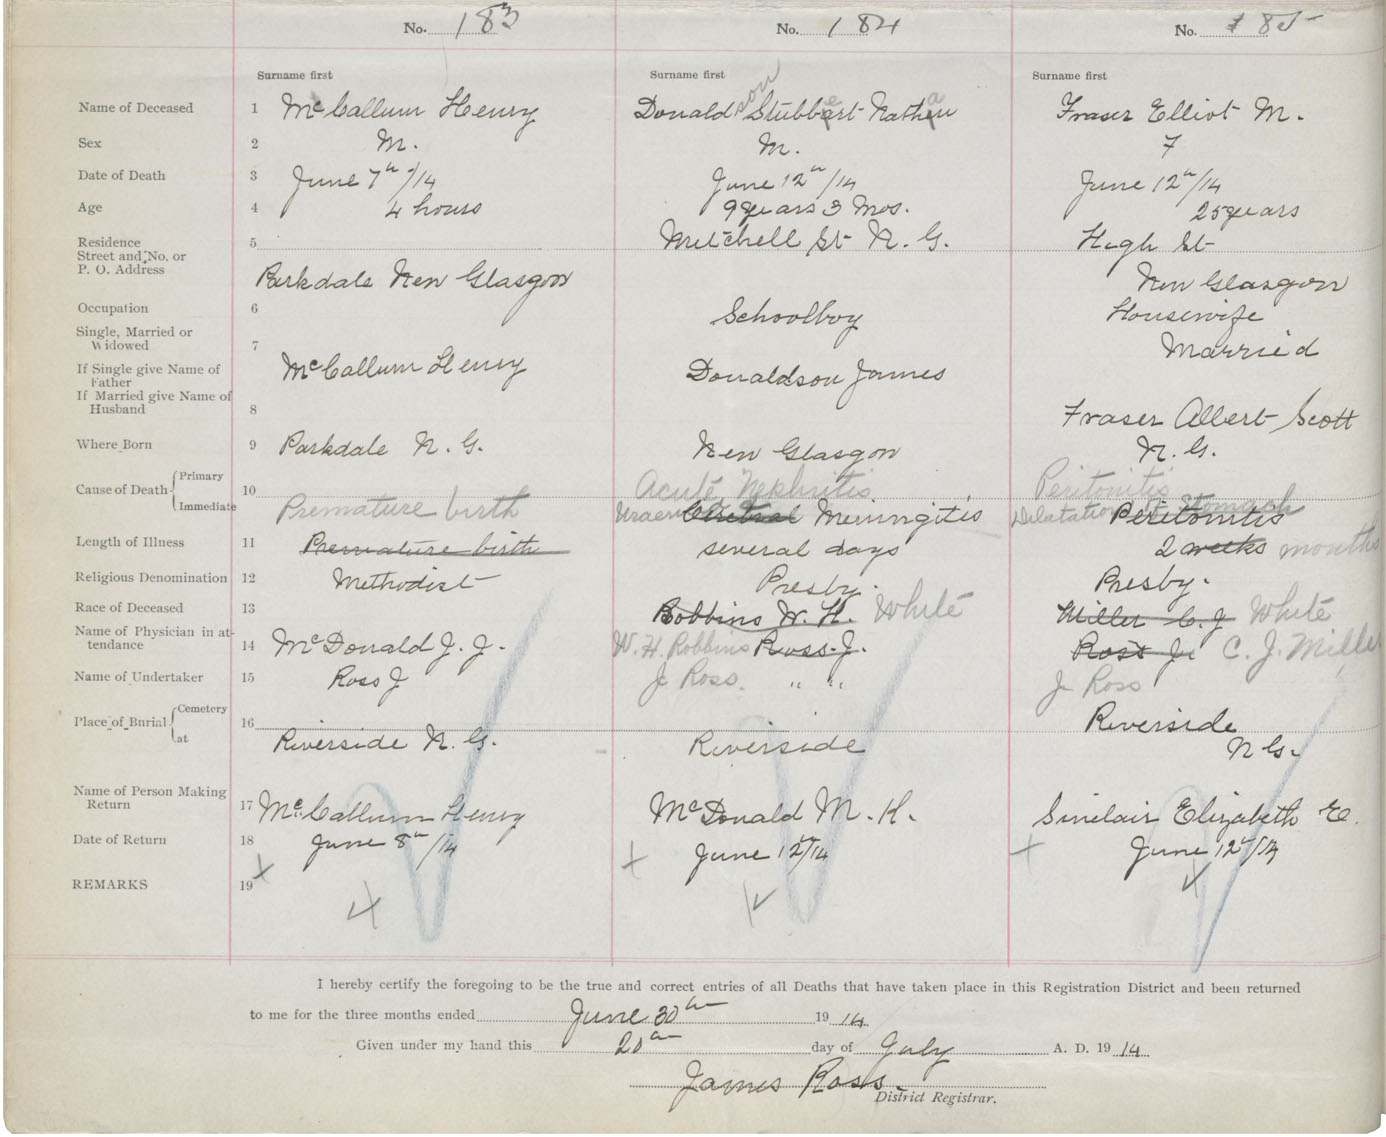 No. 183 No. 184 No. 185
Surname first Surname first Surname first
Name of Deceased 1 McCallum Henry Donaldson Stubbert Nathan Fraser Elliot M.
Sex 2 M. M. F
Date of Death 3 June 7th/14 June 12th/14 June 12th/14
Age 4 4 hours 9 years 3 Mos. 25 years
Residence 5 Mitchell St N. G. High St
Street and No. or
P. O. Address Parkdale New Glasgow New Glasgow
Occupation 6 Schoolboy Housewife
Single, Married or
Widowed 7 Married
If Single give Name of McCallum Henry Donaldson James
Father
If Married give Name of
Husband 8 Fraser Albert Scott
Where Born 9 Parkdale N. G. New Glasgow N. G.
Cause of Death Primary 10 Acute Nephritis Peritonitis
Immediate Premature birth Cerebral Meningitis Dilatation of Stomach Peritonitis
Length of Illness 11 Premature birth several days 2 weeks months
Religious Denomination 12 Methodist Presby. Presby.
Race of Deceased 13 Robbins W. H. White Miller C. J White
Name of Physician in at-
tendance 14 McDonald J. J. W. H. Robbins Ross J. Ross J. C. J. Miller
Name of Undertaker 15 Ross J J. Ross. " " J. Ross
Place of Burial Cemetery 16 Riverside
at Riverside N. G. Riverside N G.
Name of Person Making
Return 17 McCallum Henry McDonald M. H. Sinclair Elizabeth E.
Date of Return 18 June 8th/14 June 12th/14 June 12th/14
REMARKS 19
I hereby certify the foregoing to be the true and correct entries of all Deaths that have taken place in this Registration District and been returned
to me for the three months ended June 30th 1914
Given under my hand this 20th day of July A. D. 1914
James Ross.
District Registrar.